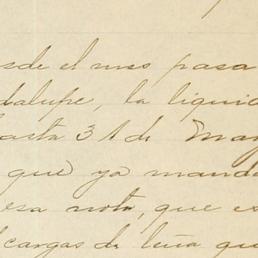 sde el mes pasa
dalupe, la liquid
hasta 31 de May
que ya manda
esa nota, que es
cargas de leña qu